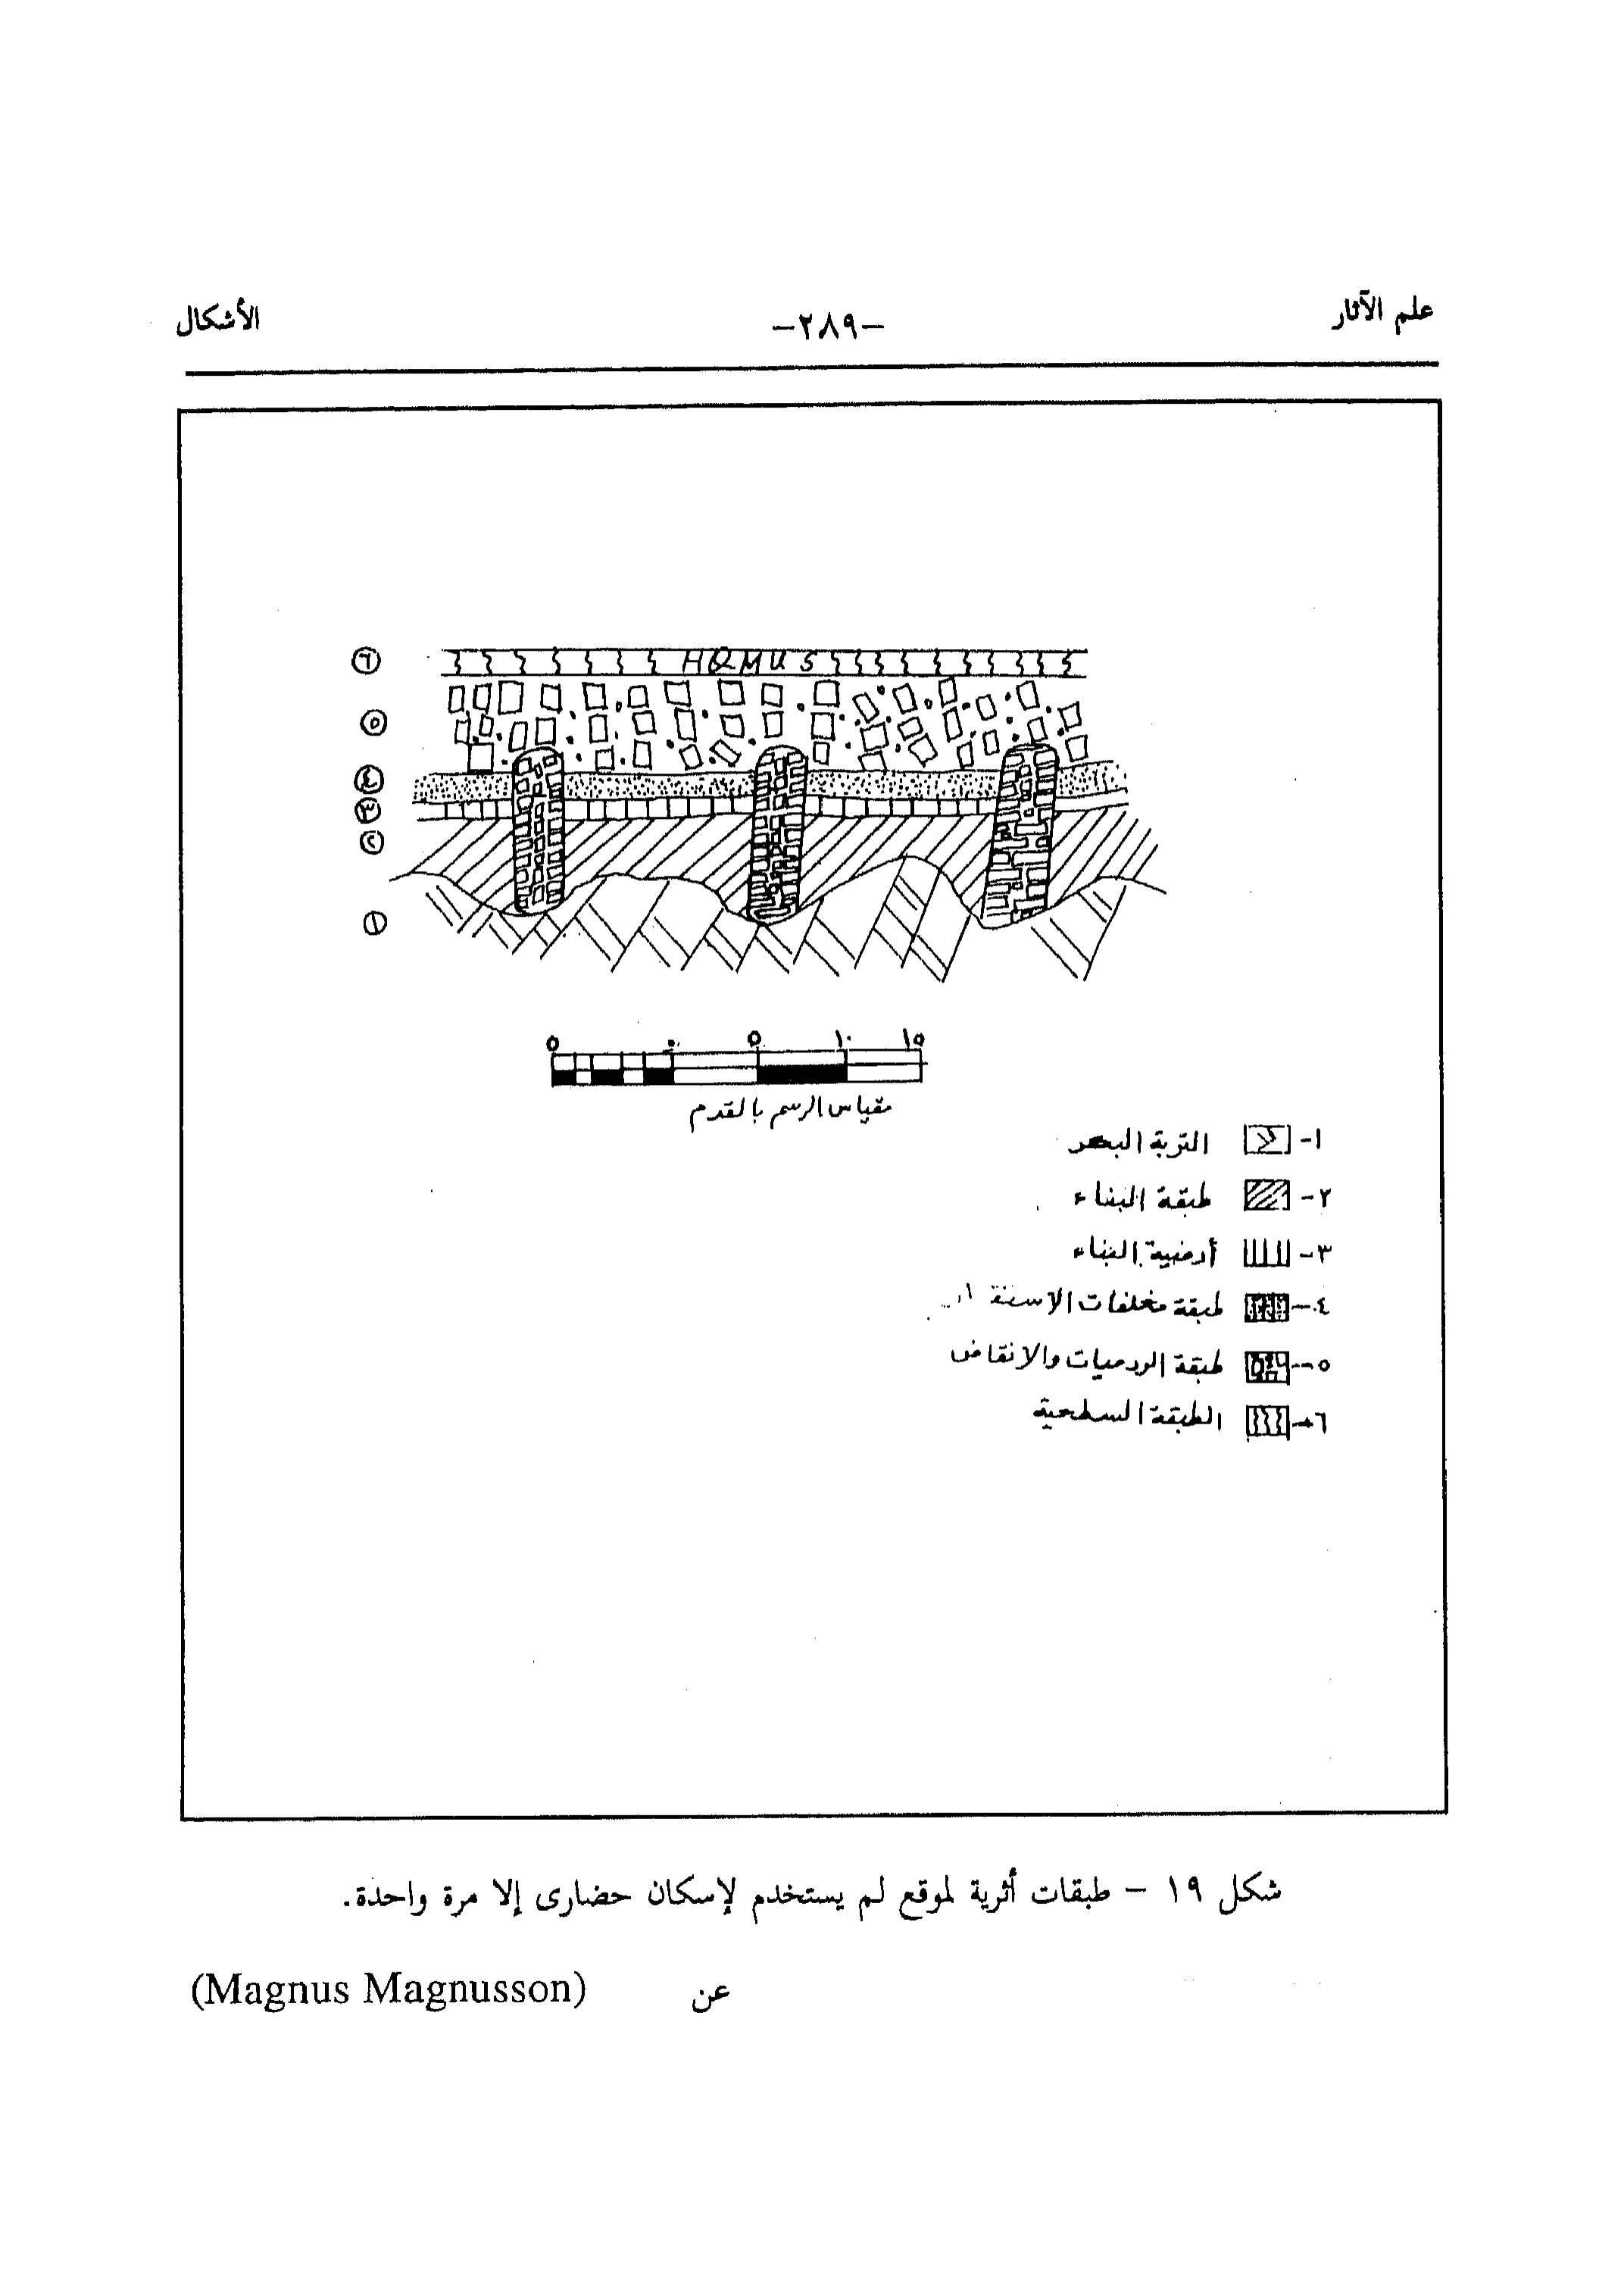 علم الآثار
-٢٨٩-
الأشكال
٦
HQMUS
٥
٤
٣
٢
١
٥ ٠ ٥ ١٠ ١٥
مقياس الرسم بالقدم
١- التربة البكر
٢- طبقة البناء
٣- أرضية البناء
٤- طبقة مخلفات
٥- طبقة الرديمات والانقاض
٦- الطبقة السطحية
شكل ١٩ - طبقات أثرية لموقع لم يستخدم لإسكان حضارى إلا مرة واحدة.
عن (Magnus Magnusson)